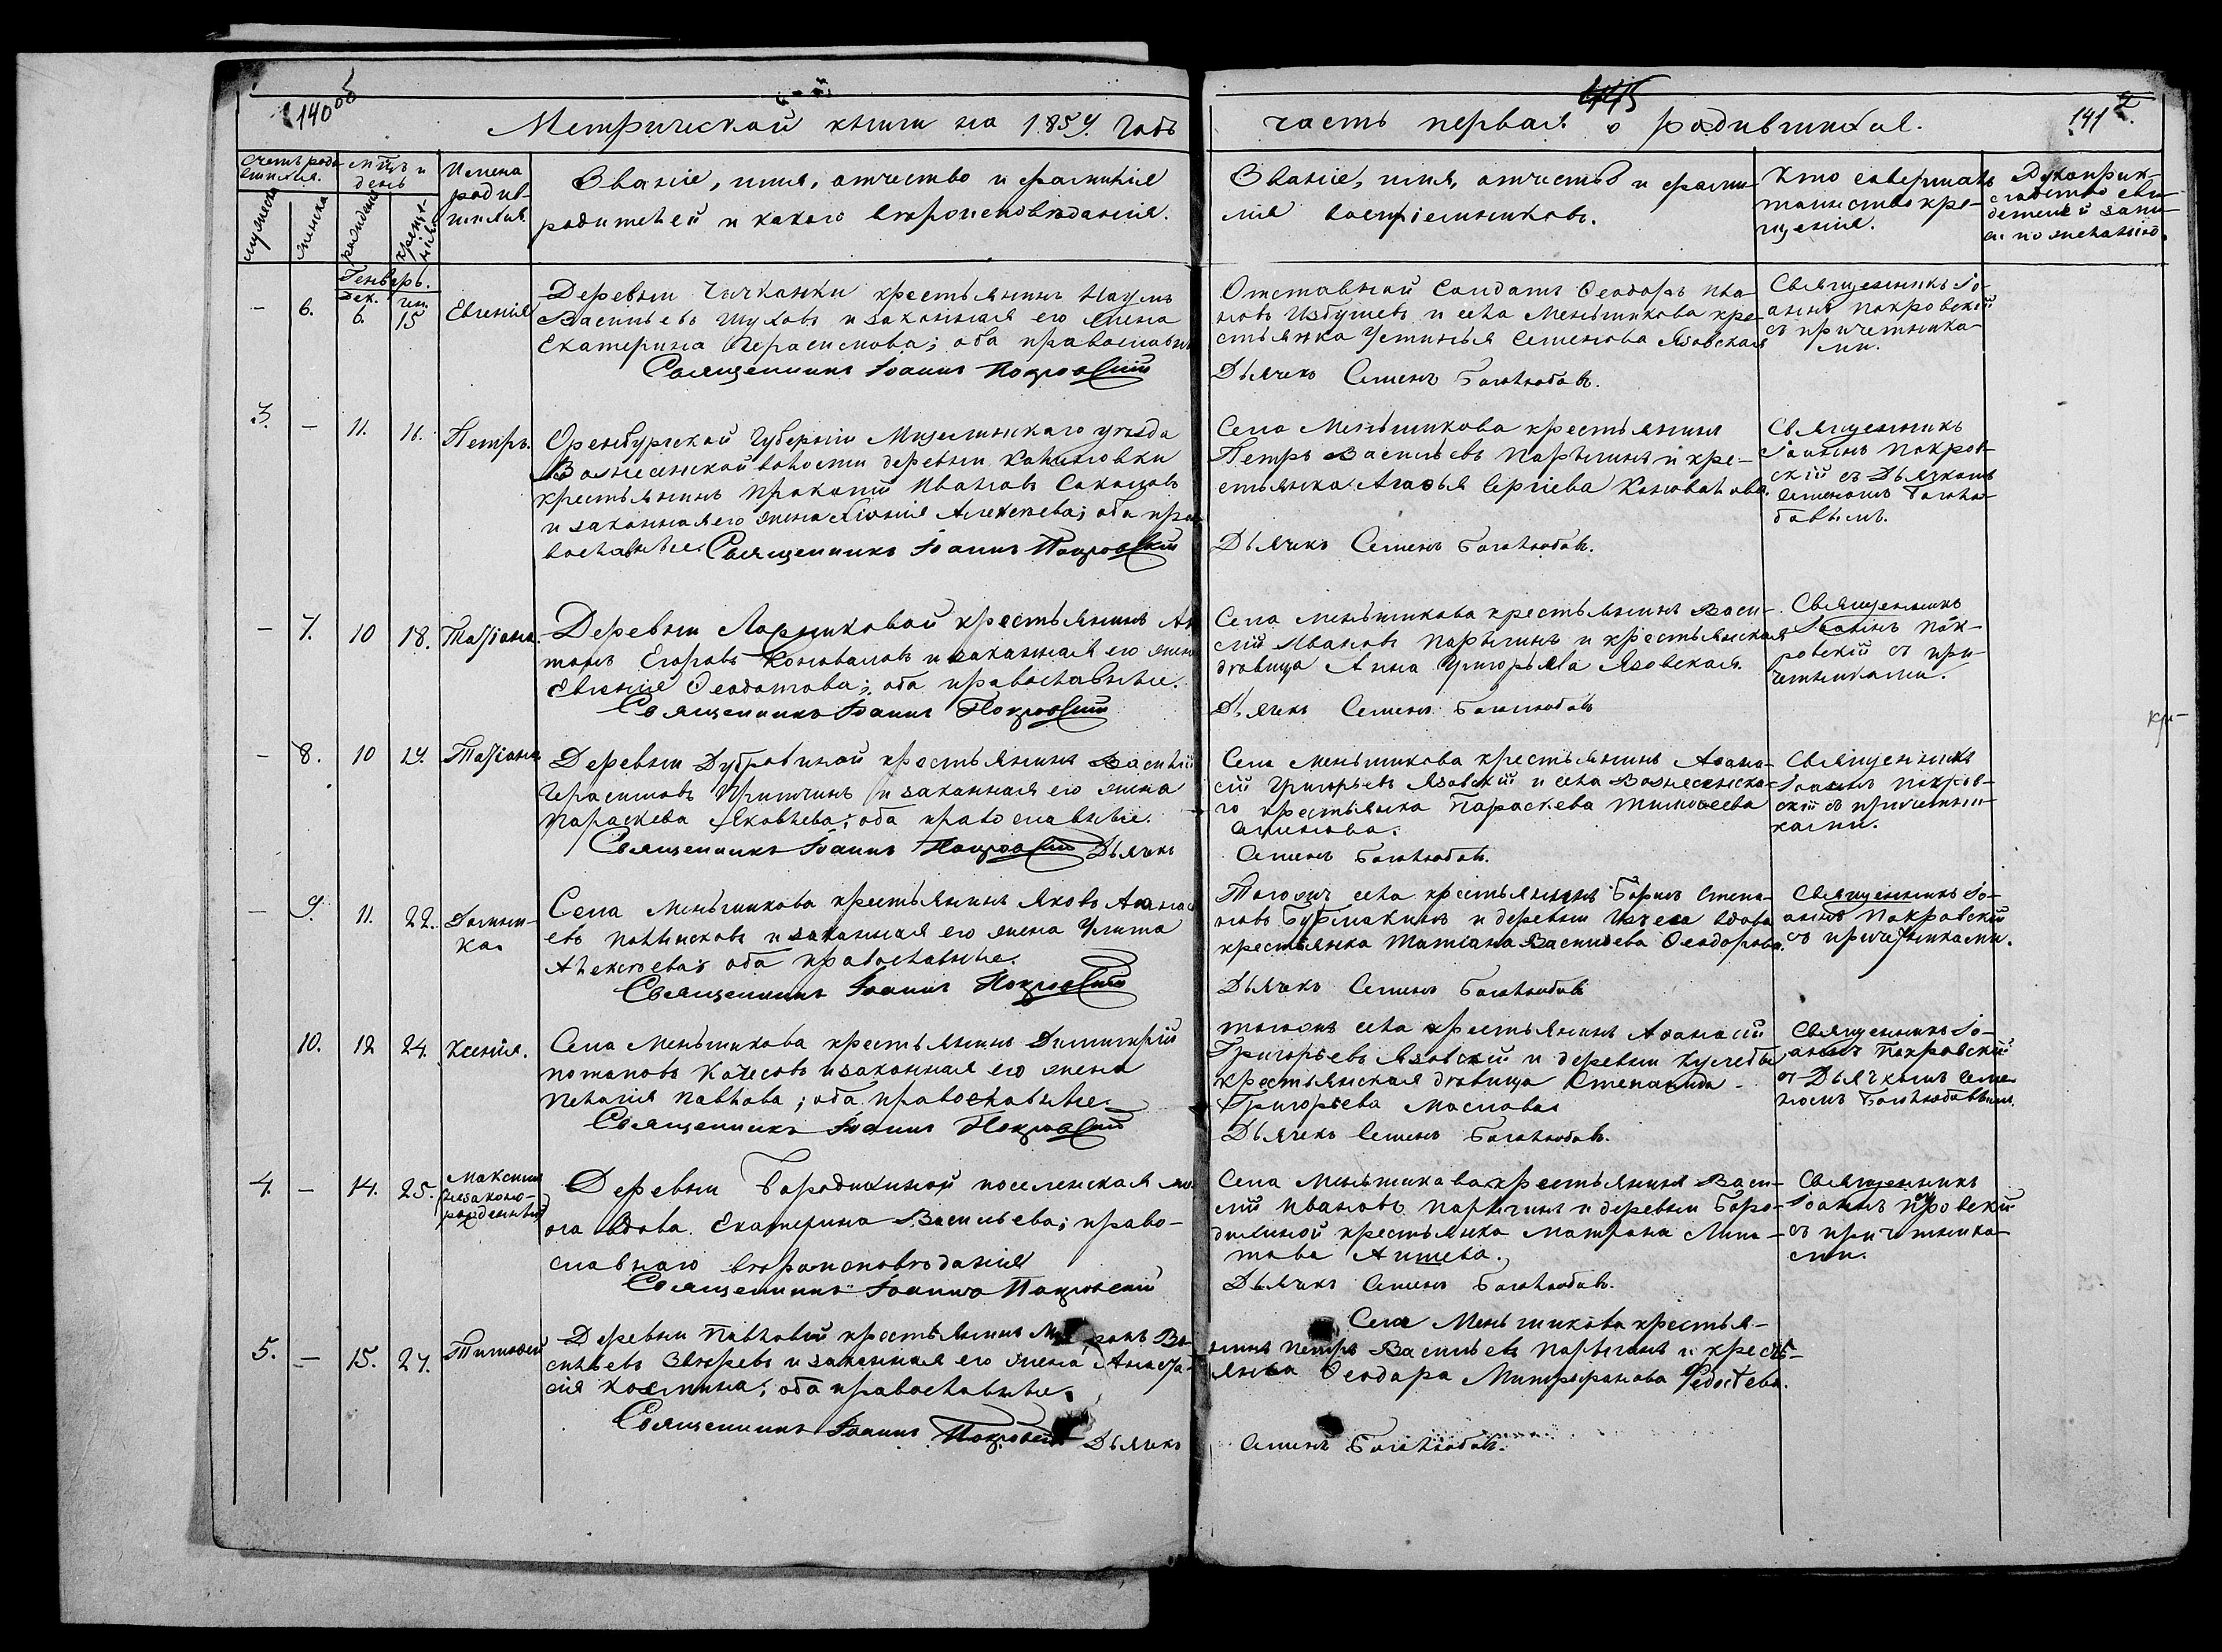 140 об
Метрической книги на 1859. Годъ
часть первая о родившихся.
141
Счетъ роди
вшихся.
мѣсяцъ и
день
Имена
родив-
шихся
мужеска
женска
рожденія
крещенія
Званіе, имя, отчество и фамилія
родителей и какого вѣроисповѣданія.
Званіе, имя, отчество и фами-
лія воспріемниковъ.
Кто совершалъ
таинство кре-
щенія.
Рукоприк-
ладство сви-
детелей запи-
си по желанію.
Генварь.
Дек. Ген.
– 6. 6. 15 Евгенія
Деревни Чичканки крестьянинъ Наумъ
Васильевъ Шуховъ и законная его жена
Екатерина Герасимова; оба православны
Священникъ Іоаннъ Покровскій
Отставной Солдатъ Ѳеодоръ Ива-
новъ Избушевъ и села Меньшикова кре-
стьянка Устинья Семенова Язовская
Дьячекъ Семенъ Боголюбовъ.
Священникъ Іо-
аннъ Покровскій
съ причетника-
ми.
3. – 11. 16. Петръ.
Оренбургской Губерніи Мензелинскаго уѣзда
Вознесенской волости деревни Калиновки
крестьянинъ Прокопій Ивановъ
и законная его жена Алексѣева; оба пра
вославные. Священникъ Іоаннъ Покровскій
Села Меньшикова крестьянинъ
Петръ Васильевъ Парыгинъ и кре-
стьянка Агафья Сергіева Коновалова.
Дьячекъ Семенъ Боголюбовъ.
Священникъ
Іоаннъ Покров-
скій съ Дьячкомъ
Семеномъ Боголю-
бовымъ.
– 7. 10 18. Татіана.
Деревни Ларниковой крестьянинъ Ан
тонъ Егоровъ Коноваловъ и законная его жена
Евгенія Ѳеодотова; оба православные.
Священникъ Іоаннъ Покровскій
Села Меньшикова крестьянинъ Васи-
лій Ивановъ Парыгинъ и крестьянская
дѣвица Анна Григорьева Язовская.
Дьячекъ Семенъ Боголюбовъ
Священникъ
Іоаннъ Пок-
ровскій съ при-
четниками.
– 8. 10 19. Татіана
Деревни Дубровиной крестьянинъ Василій
Герасимовъ Притчинъ и законная его жена
Параскева Яковлева; оба православные.
Священникъ Іоаннъ Покровскій Дьячекъ
Села Меньшикова крестьянинъ Аѳана-
сій Григорьевъ Язовскій и села Вознесенска-
го крестьянка Параскева Тимоѳеева
Семенова.
Семенъ Боголюбовъ.
Священникъ
Іоаннъ Покров-
скій съ причетни-
ками.
– 9. 11. 22. Домни-
ка.
Села Меньшикова крестьянинъ Яковъ Аѳанась
евъ и законная его жена Улита
Алексѣева; оба православные.
Священникъ Іоаннъ Покровскій
Тогожъ села крестьянинъ Борисъ Степа-
новъ Бурмакинъ и деревни вдова
крестьянка Татіана Васильева Ѳеодорова.
Дьячекъ Семенъ Боголюбовъ
Священникъ Іо-
аннъ Покровскій
съ причетниками.
10. 12 24. Ксенія.
Села Меньшикова крестьянинъ Димитрій
Потаповъ Качесовъ и законная его жена
Пелагія Павлова; оба православные.
Священникъ Іоаннъ Покровскій
Тогожъ села крестьянинъ Аѳанасій
Григорьевъ Язовскій и деревни Кулебы
крестьянская дѣвица Степанида
Григорьева Маслова
Дьячекъ Семенъ Боголюбовъ.
Священникъ Іо-
аннъ Покровскій
съ Дьячкомъ Семе-
номъ Боголюбовымъ.
4. – 14. 25. Максимъ
(незаконно-
рожденный)
Деревни Бородихиной поселенская же-
на вдова Екатерина Васильева; право-
славнаго вѣроисповѣданія
Священникъ Іоаннъ Покровскій
Села Меньшикова крестьянинъ Васи-
лій Ивановъ Парыгинъ и деревни Боро-
дихиной крестьянка Матрона Липа-
това
Дьячекъ Семенъ Боголюбовъ.
Священникъ
Іоаннъ Покровскій
съ причетника-
ми.
5. – 15. 27. Тимоѳей
Деревни Павловой крестьянинъ Ва-
сильевъ Звѣревъ и законная его жена Анаста-
сія Козмина; оба православные.
Священникъ Іоаннъ Покровскій Дьячекъ
Села Меньшикова крестья-
нинъ Петръ Васильевъ Парыгинъ и кресть-
янка Ѳеодора Митрофанова Федотева.
Семенъ Боголюбовъ.